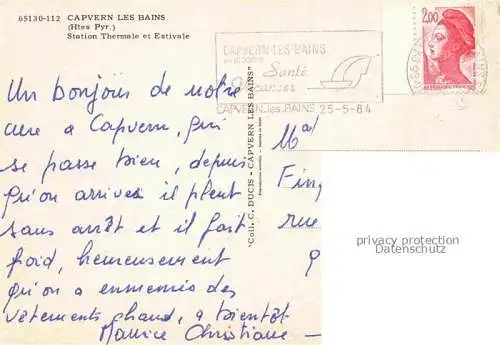 65130-112 CAPVERN LES BAINS
(Htes Pyr.)
Station Thermale et Estivale
CAPVERN-LES-BAINS
Santé
CAPVERN-les-BAINS 25-5-84
2,00
Un bonjour de notre
cure a Capvern, qui
se passe bien, depuis
qu'on arrives il pleut
sans arrêt et il fait
froid, heureusement
qu'on a emmenés des
vêtements chaud, a bientôt
Maurice Christiane
"Coll. C. DUCIS - CAPVERN LES BAINS"
rue
privacy protection
Datenschutz